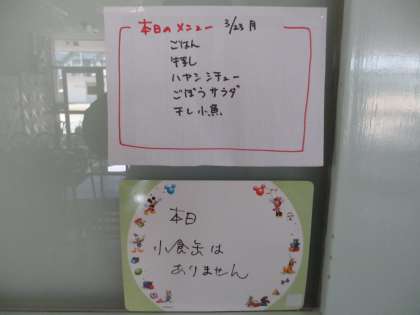 本日のメニュー 3/23 月
ごはん
牛乳
ハヤシシチュー
ごぼうサラダ
干し小魚
本日
小食缶は
ありません